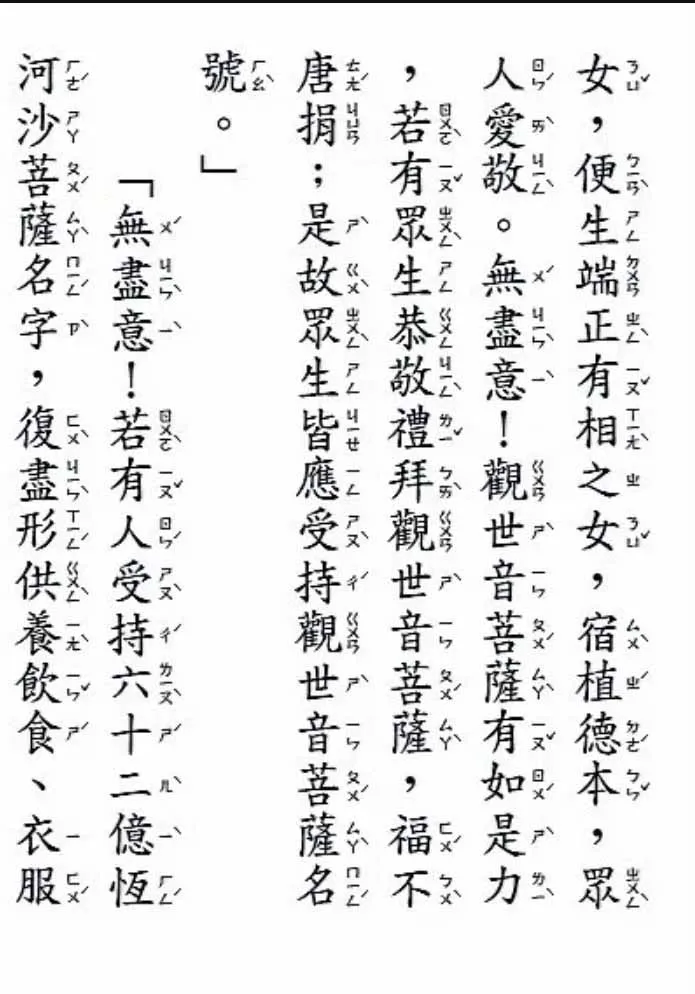 女，便生端正有相之女，宿植德本，眾
人愛敬。無盡意！觀世音菩薩有如是力
，若有眾生恭敬禮拜觀世音菩薩，福不
唐捐；是故眾生皆應受持觀世音菩薩名
號。」
「無盡意！若有人受持六十二億恆
河沙菩薩名字，復盡形供養飲食、衣服